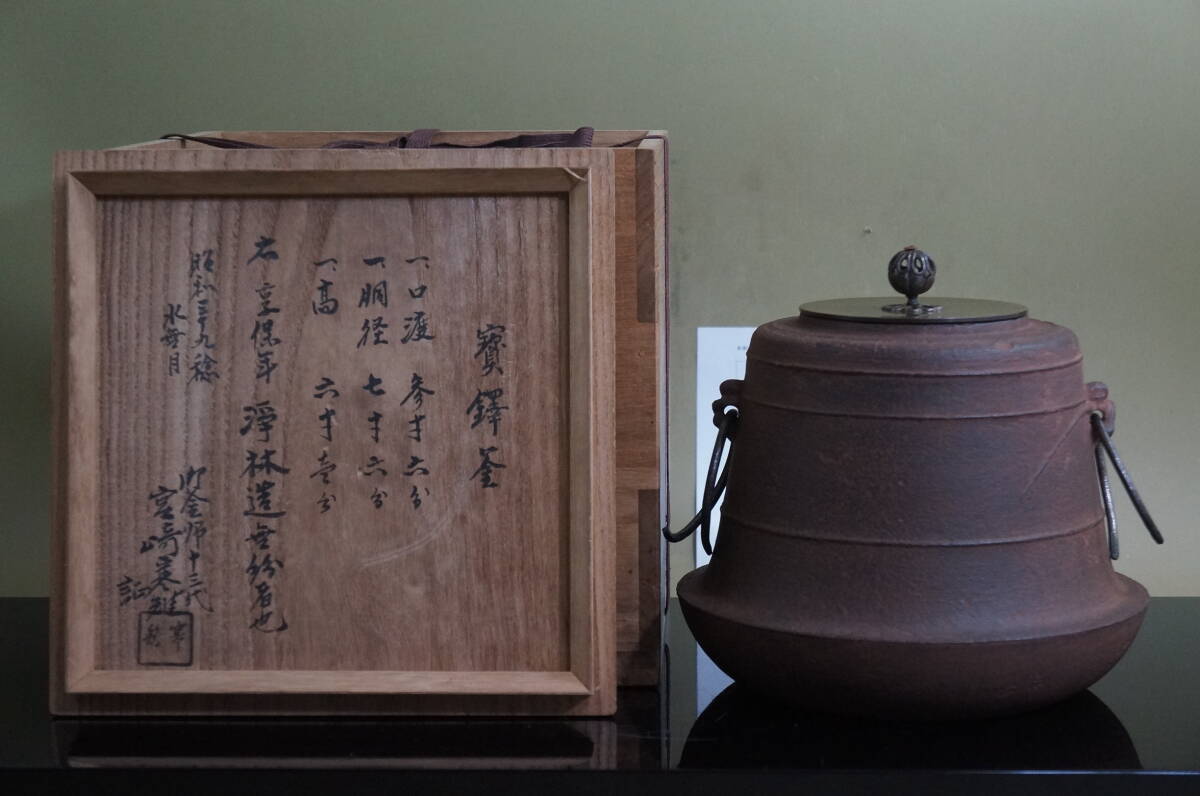 寶鐸釜
一、口渡 参寸六分
一、胴径 七寸六分
一、高 六寸壱分
右享保年 淨林造無紛者也
昭和三十九稔
水無月
御釜師十三代
宮崎寒雉
証